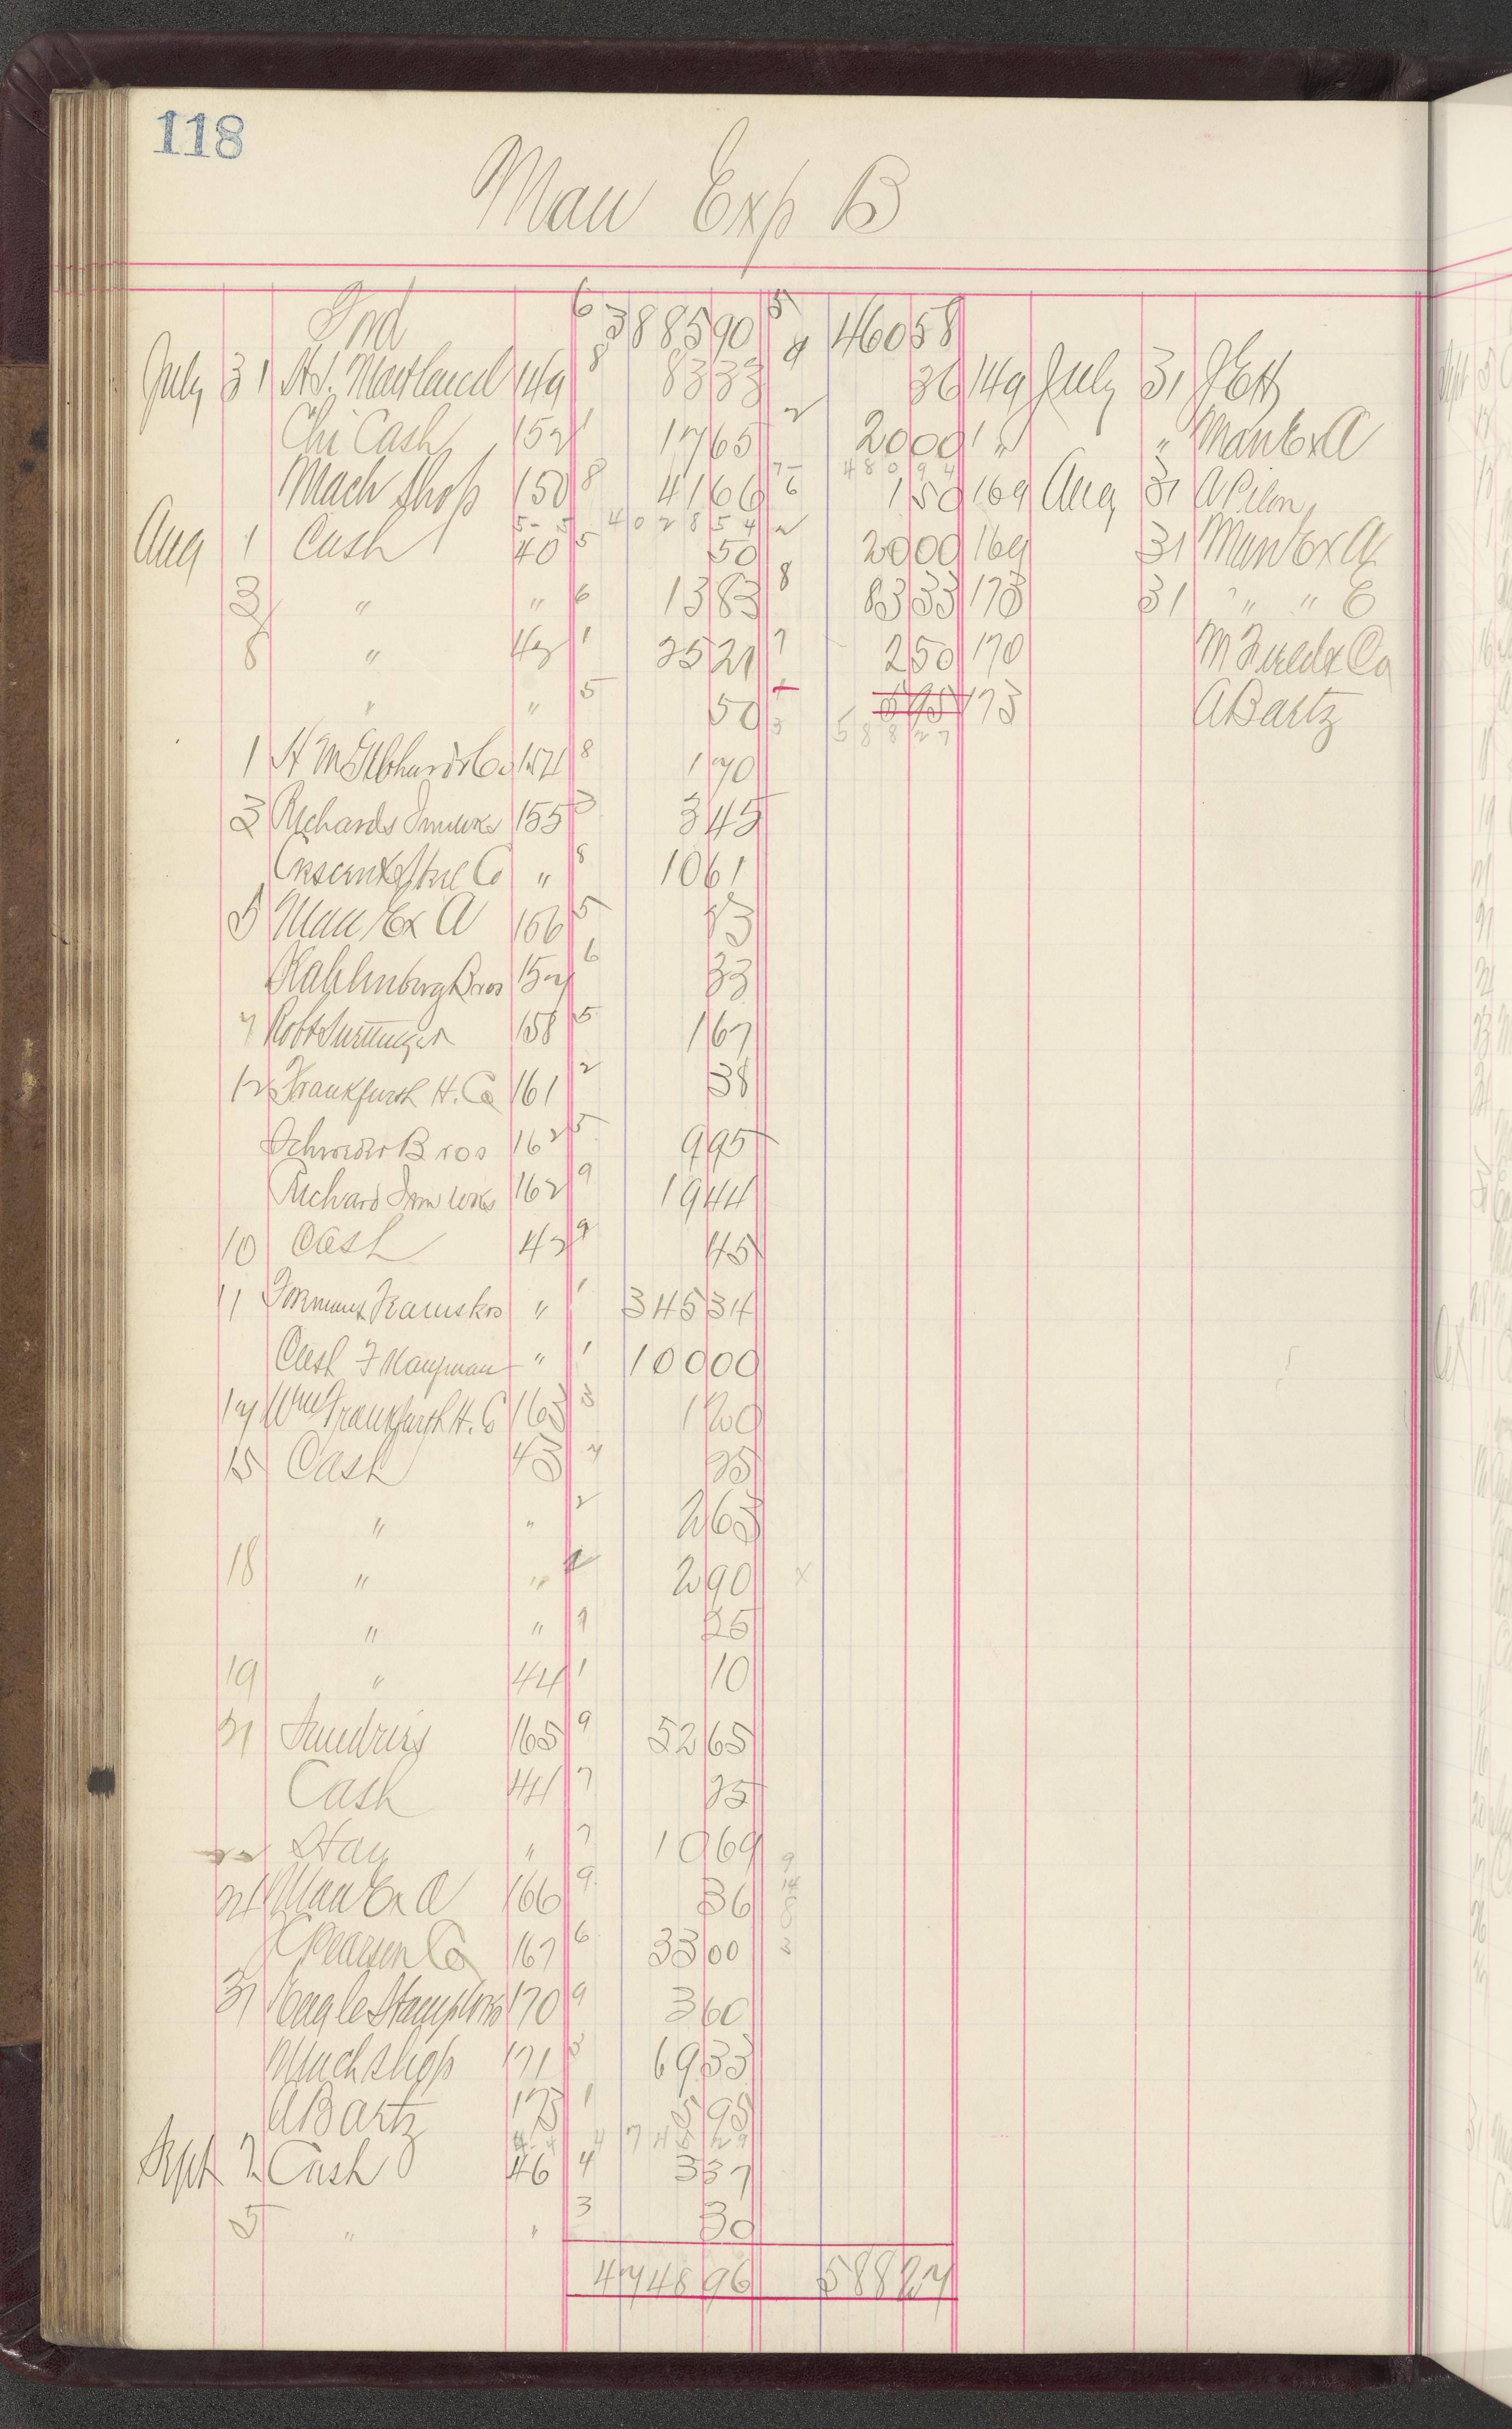 118
Man Exp B
Frd 6 3885 90 5 460 58
July 31 149 8 83 33 9 36 149 July 31
Chi Cash 152 1 17 65 2 20 00 " " Man Ex A
Mach Shop 150 8 41 66 6 1 50 169 Aug 31 A Pilon
4028 54 480 94
Aug 1 Cash 40 5 50 2 20 00 169 31 Man Ex A
3 " " 6 13 83 8 83 33 173 31 " " E
8 " 42 1 25 21 7 2 50 170
" " 5 50 5 95 173 A Bartz
588 27
1 154 8 1 70
3 Richards Iron Wks 155 3 3 45
Crescent Steel Co " 8 10 61
5 Man Ex A 156 5 13
Kahlenberg Bros 157 6 33
7 Robt 158 5 1 67
12 Frankfurth H. Co 161 2 38
Bros 162 5 9 95
Richard Iron Wks 162 9 19 44
10 Cash 42 9 45
11 " 1 345 34
Cash F Kaufman " 1 100 00
17 Wm Frankfurth H. C 163 3 1 20
15 Cash 43 7 25
" " 2 2 63
18 " " 2 2 90
" " 9 25
19 " 44 1 10
21 Sundries 165 9 52 65
Cash 44 7 25
22 Hay " 7 10 69
24 Man Ex A 166 9 36
Pearsen Co 167 6 33 00
31 Eagle Stamp Wks 170 9 3 60
Mach Shop 171 3 69 33
A Bartz 173 1 5 95
4745 29
Sept 2 Cash 46 4 3 37
5 " " 3 30
4748 96 588 27